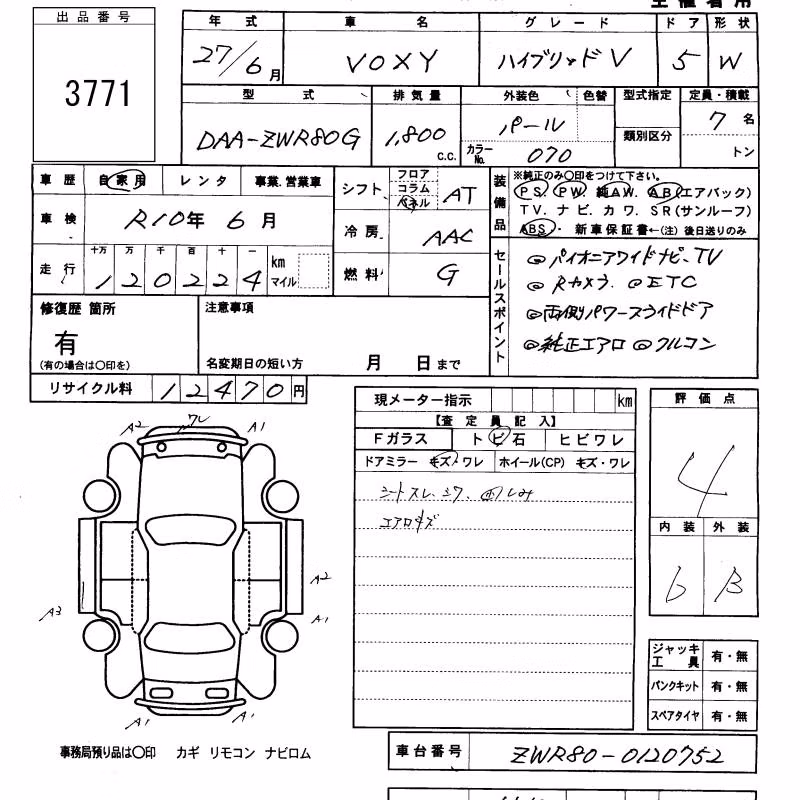 出品番号
3771
年式 車名 グレード ドア 形状
27/6月 VOXY ハイブリッドV 5 W
型式 排気量 外装色 色替 型式指定 定員・積載
DAA-ZWR80G 1,800 C.C. パール 類別区分 7名
カラーNo. 070 トン
車歴 自家用 レンタ 事業.営業車
シフト フロア コラム パネル AT
車検 R10年 6月
冷房 AAC
走行 十万 万 千 百 十 一
1 2 0 2 2 4 km マイル
燃料 G
装備品
※純正のみ〇印をつけて下さい。
PS PW 純AW. AB(エアバック)
TV. ナビ. カワ. SR(サンルーフ)
ABS・ 新車保証書←(注) 後日送りのみ
セールスポイント
◎パイオニアワイドナビ、TV
◎Rカメラ ◎ETC
◎両側パワースライドドア
◎純正エアロ ◎フルコン
修復歴 箇所
有
(有の場合は〇印を)
注意事項
名変期日の短い方 月 日まで
リサイクル料 12470円
現メーター指示 km
【査定員記入】
Fガラス トビ石 ヒビワレ
ドアミラー キズ・ワレ ホイール(CP) キズ・ワレ
シートスレ、シワ、
エアロキズ
評価点
4
内装 外装
b B
A2 ワレ A1
A2
A3 A1
A1 A1
ジャッキ工具 有・無
パンクキット 有・無
スペアタイヤ 有・無
事務局預り品は〇印 カギ リモコン ナビロム
車台番号 ZWR80-0120752